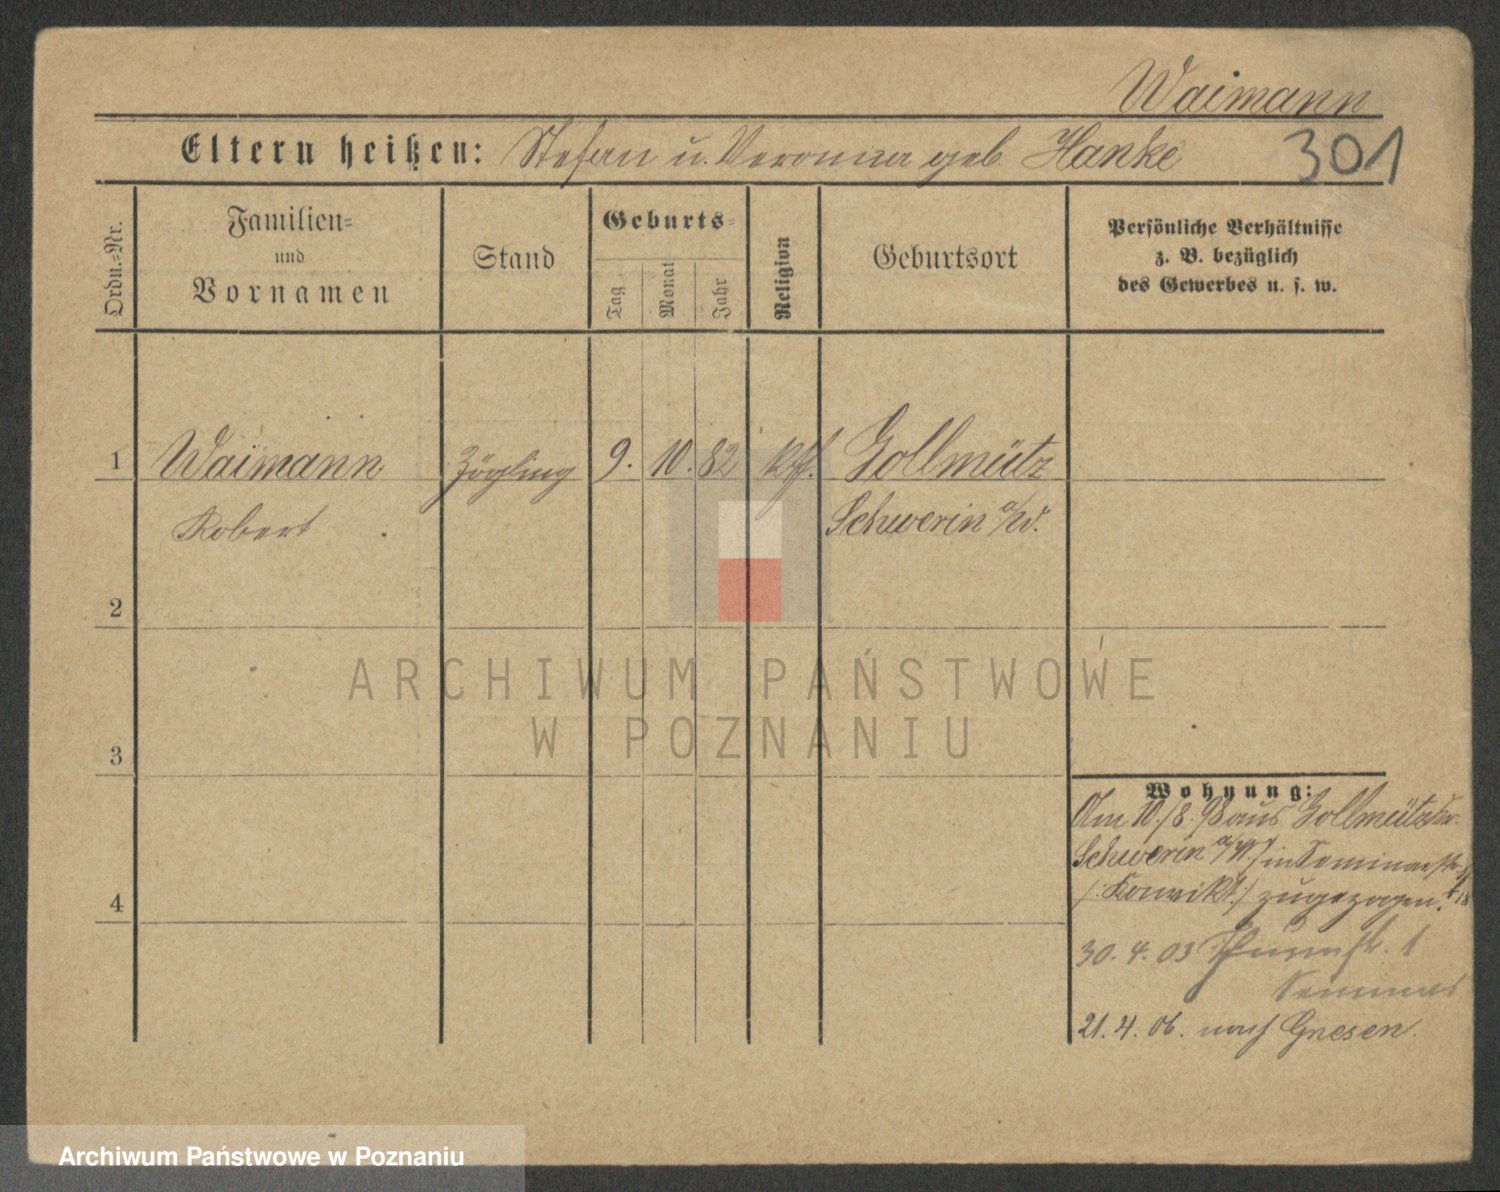 Waimann
Eltern heißen: Stefan u. Veronica geb. Hanke
301
Ordn.-Nr.
Familien-
und
Vornamen
Stand
Geburts-
Tag
Monat
Jahr
Religion
Geburtsort
Persönliche Verhältnisse
z. B. bezüglich
des Gewerbes u. s. w.
1 Waimann Zögling 9. 10. 82 Gollmütz
Robert Schwerin a/W.
2
ARCHIWUM PAŃSTWOWE
W POZNANIU
3
Wohnung:
Am 10./8. 98 aus Gollmütz Kr.
Schwerin a/W. in Seminarstr.
/: Konvikt :/ zugezogen.
4
30. 4. 03 1
Seminar
21. 4. 06. nach Gnesen.
Archiwum Państwowe w Poznaniu